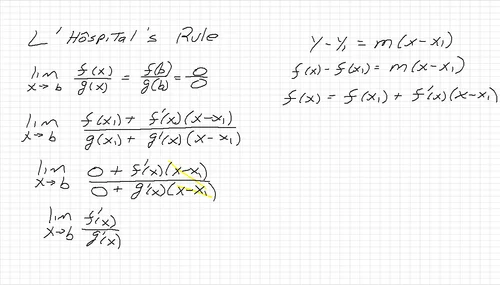 L'Hôspital's Rule
lim x→b f(x)/g(x) = f(b)/g(b) = 0/0
lim x→b (f(x₁) + f'(x)(x-x₁))/(g(x₁) + g'(x)(x-x₁))
lim x→b (0 + f'(x)(x-x₁))/(0 + g'(x)(x-x₁))
lim x→b f'(x)/g'(x)
y-y₁ = m(x-x₁)
f(x)-f(x₁) = m(x-x₁)
f(x) = f(x₁) + f'(x)(x-x₁)